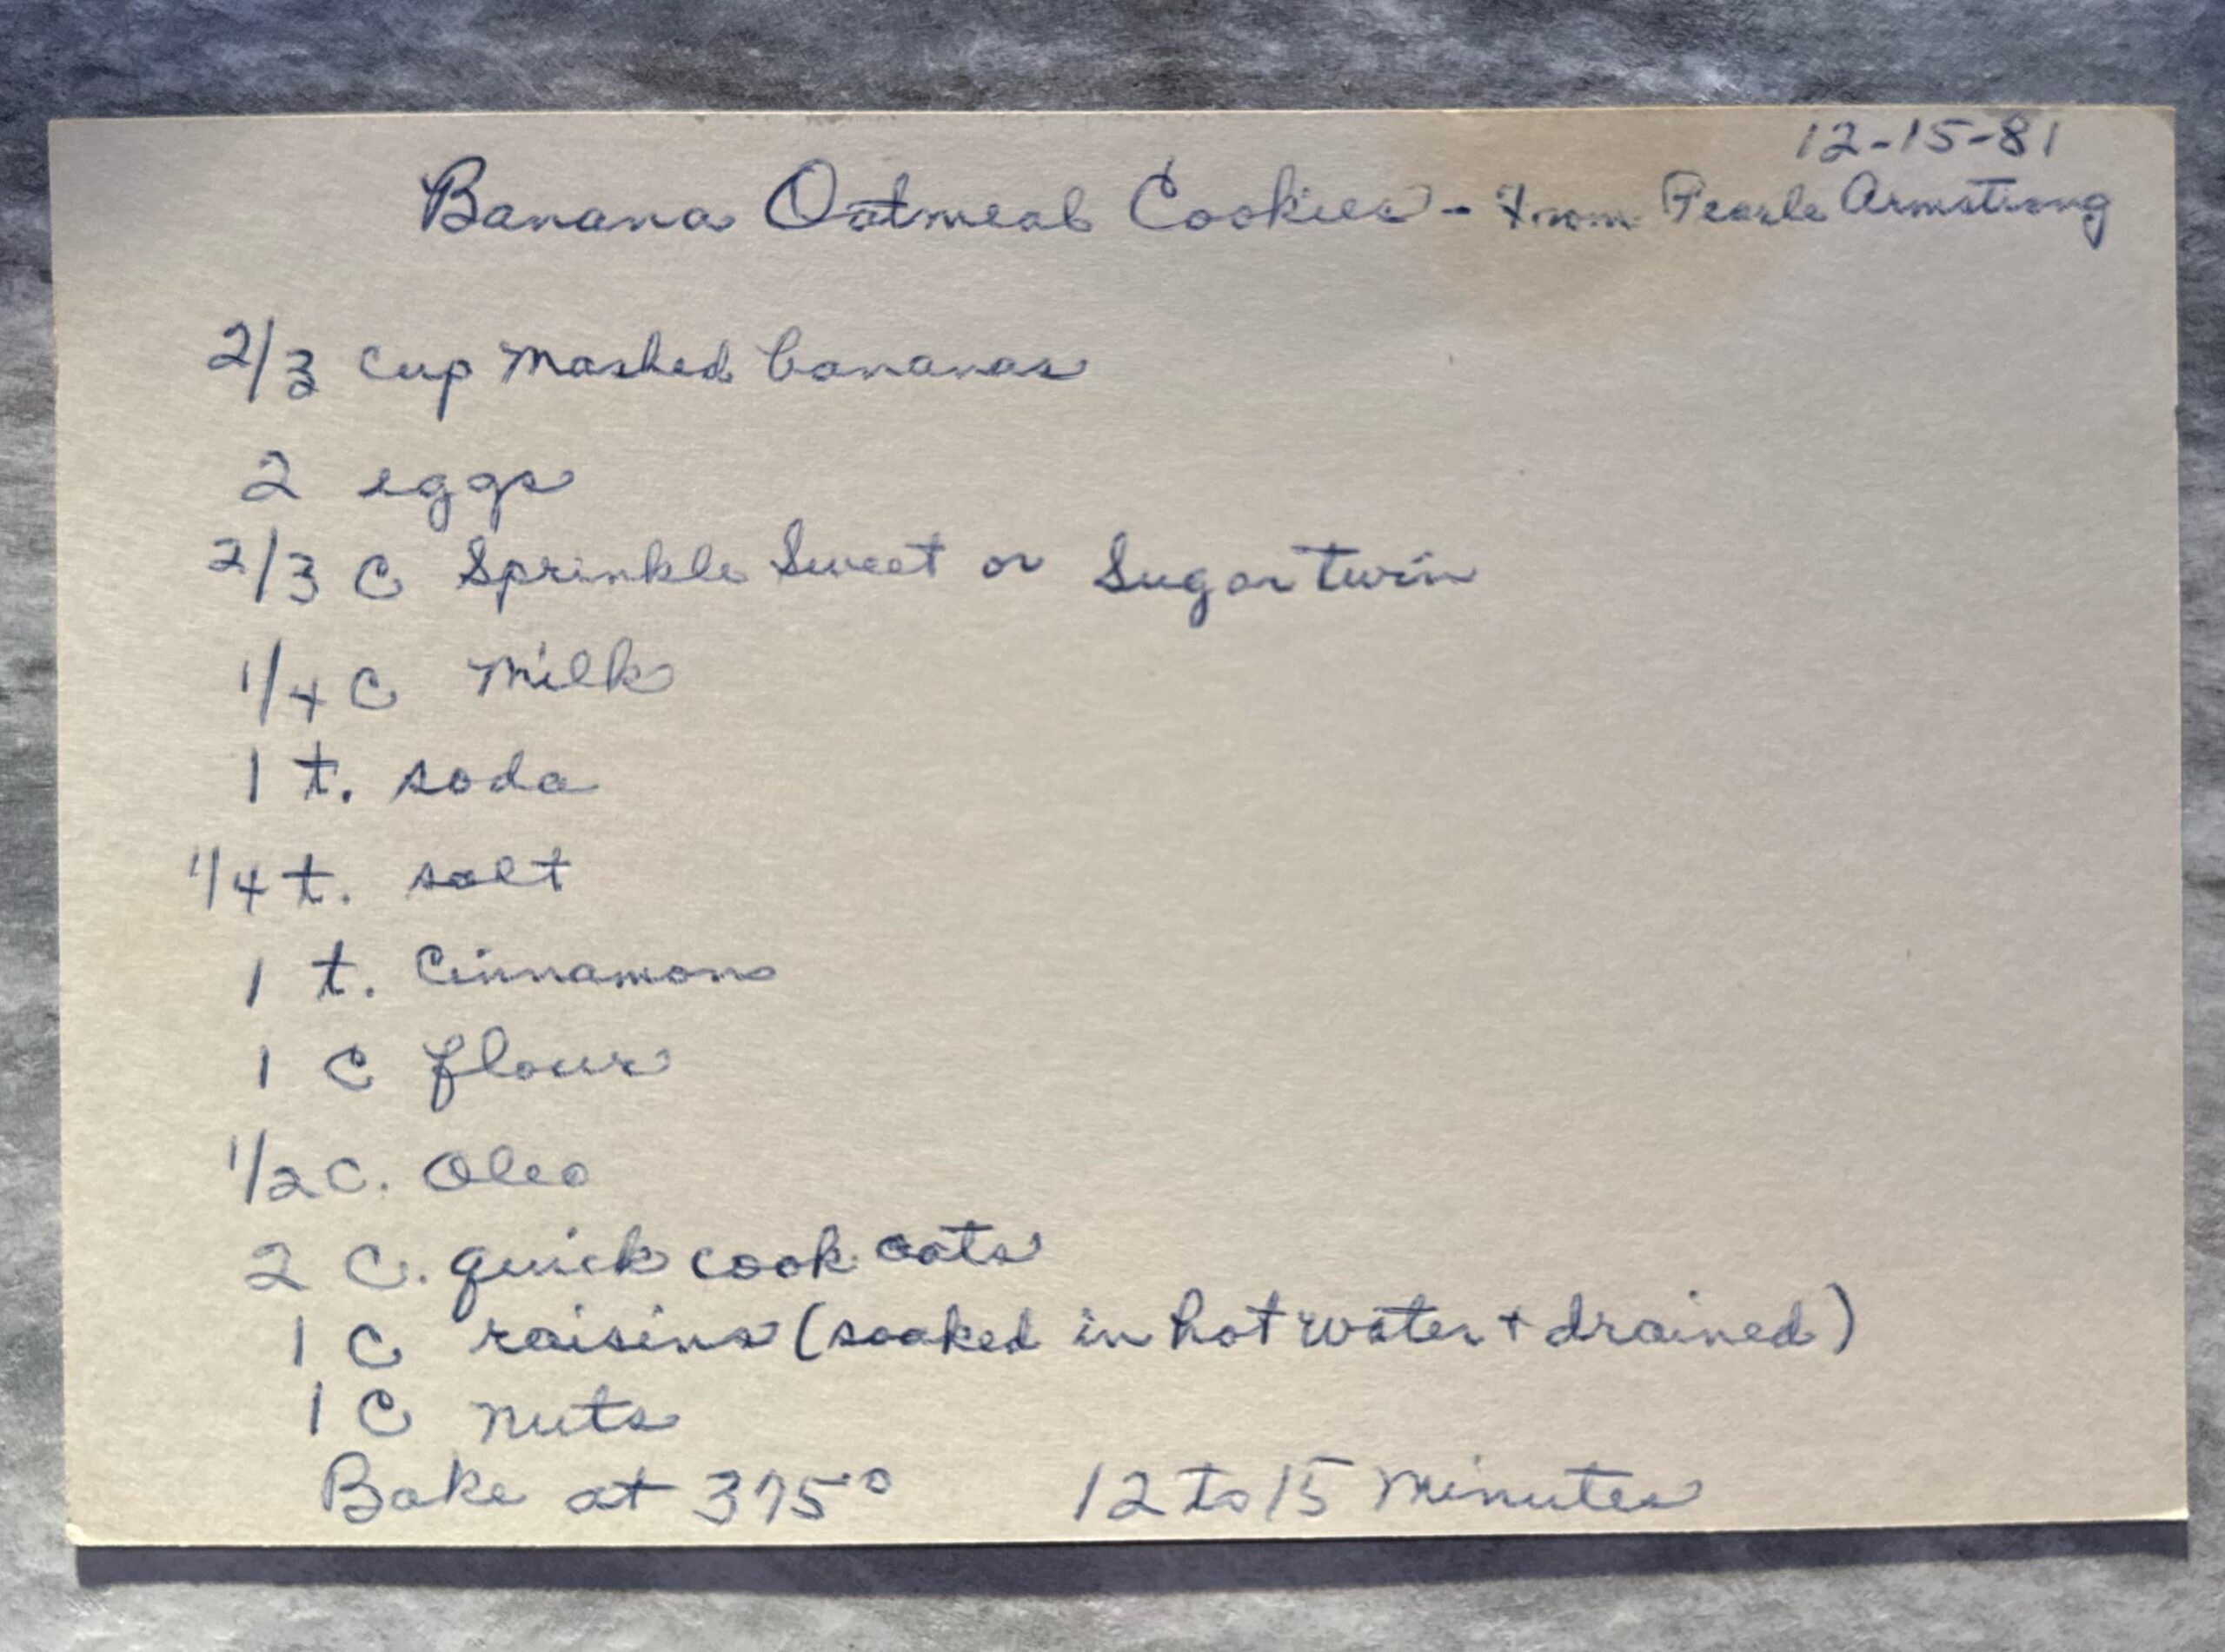 12-15-81
Banana Oatmeal Cookies - From Pearle Armstrong
2/3 cup mashed bananas
2 eggs
2/3 C Sprinkle Sweet or Sugar twin
1/4 C Milk
1 t. soda
1/4 t. salt
1 t. Cinnamon
1 C flour
1/2 C. Oleo
2 C. quick cook oats
1 C raisins (soaked in hot water + drained)
1 C nuts
Bake at 375° 12 to 15 Minutes